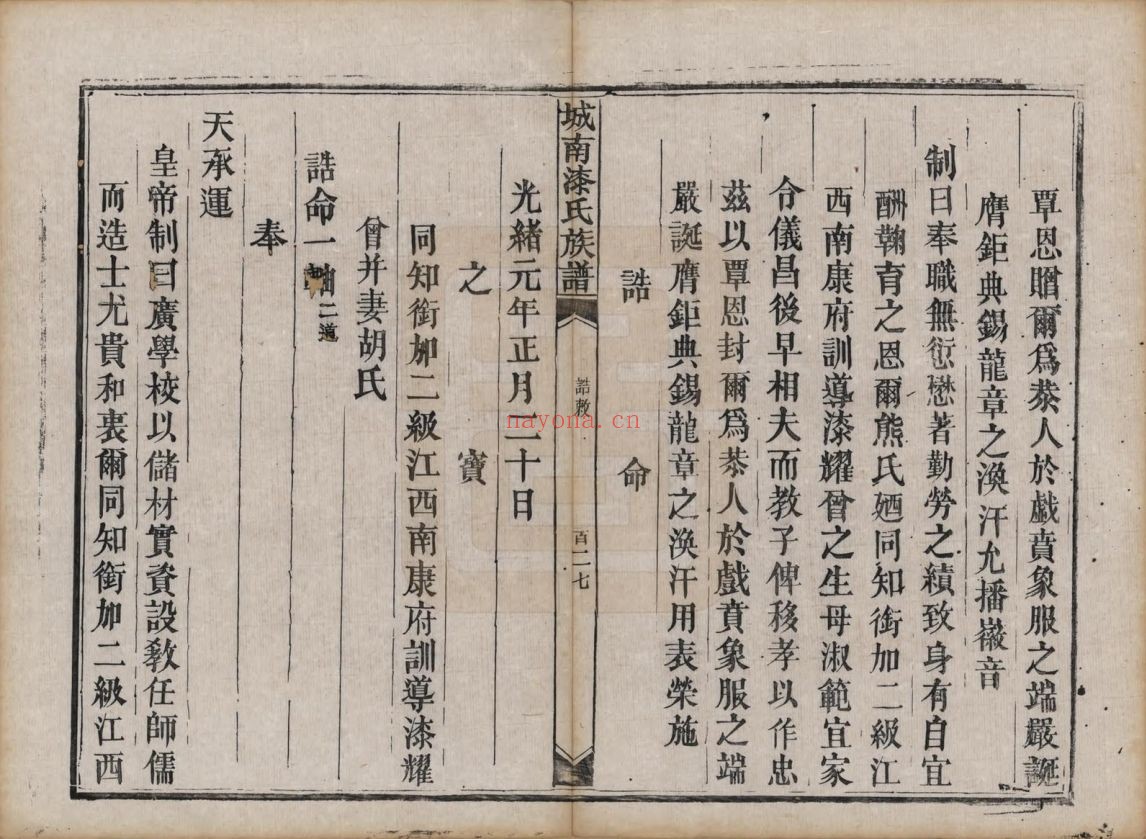 覃恩贈爾爲恭人於戯賁象服之端嚴誕
膺鉅典錫龍章之渙汗允播徽音
制曰奉職無愆懋著勤勞之績致身有自宜
酬鞠育之恩爾熊氏廼同知銜加二級江
西南康府訓導漆耀曾之生母淑範宜家
令儀昌後早相夫而教子俾移孝以作忠
茲以覃恩封爾爲恭人於戲賁象服之端
嚴誕膺鉅典錫龍章之渙汗用表榮施
誥命
城南漆氏族譜
誥敕
百二七
光緒元年正月二十日
之寶
同知銜加二級江西南康府訓導漆耀
曾并妻胡氏
誥命一軸二道
奉
天承運
皇帝制曰廣學校以儲材實資設敎任師儒
而造士尤貴和衷爾同知銜加二級江西
nayona.cn